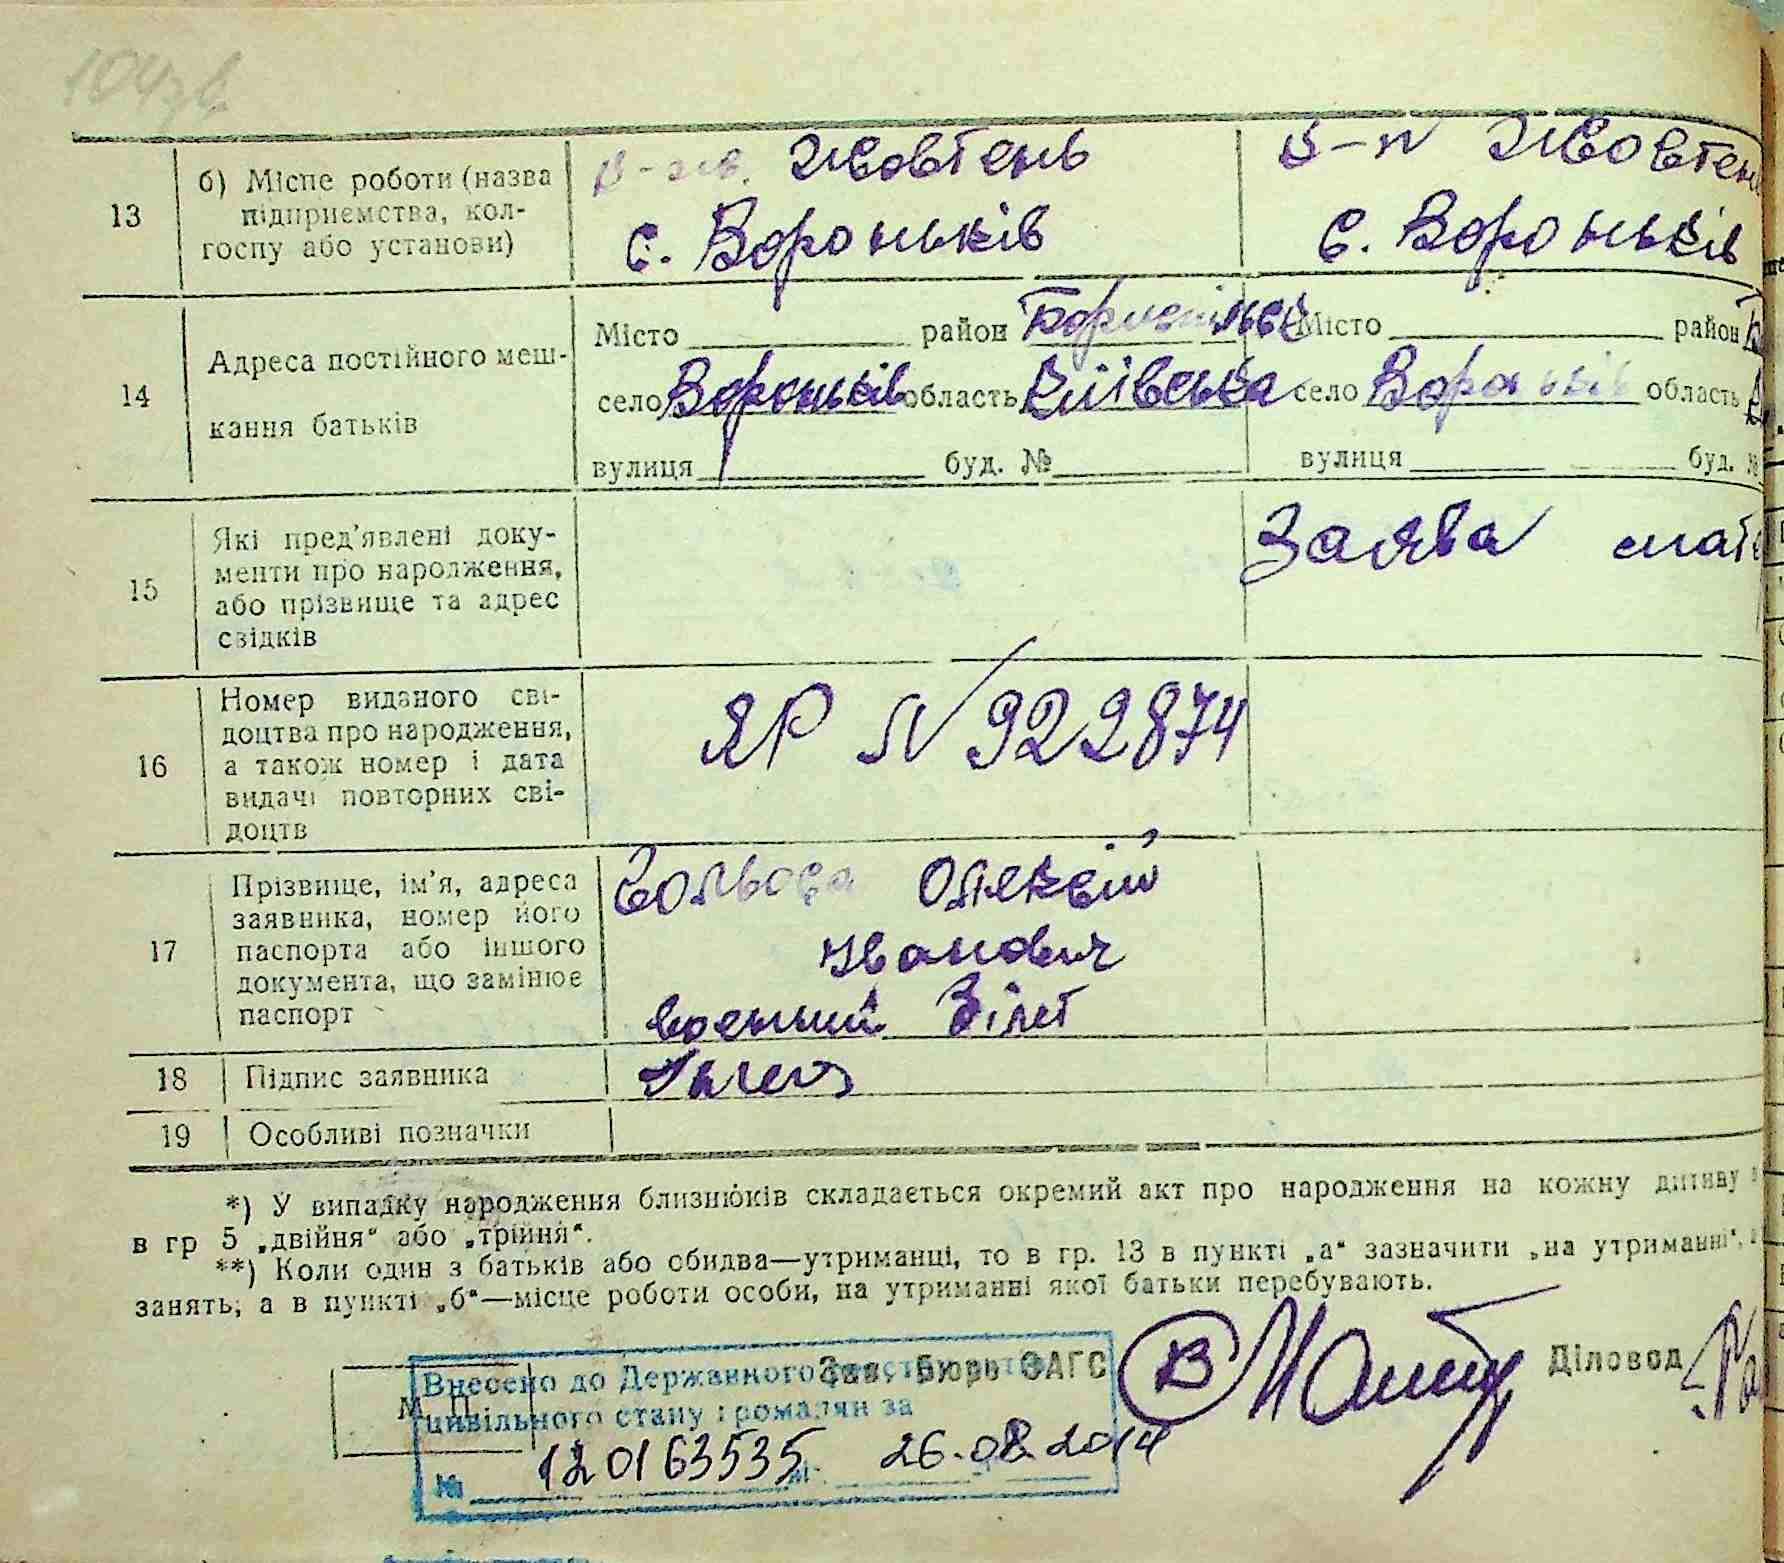 104зв
13
б) Місце роботи (назва
підприємства, кол-
госпу або установи)
Жовтень
с. Вороньків
Жовтень
с. Вороньків
14
Адреса постійного меш-
кання батьків
Місто район Бориспільс
село Вороньків область Київська
вулиця буд. №
Місто район
село Вороньків область
вулиця буд. №
15
Які пред'явлені доку-
менти про народження,
або прізвище та адрес
свідків
Заява мат
16
Номер виданого сві-
доцтва про народження,
а також номер і дата
видачі повторних сві-
доцтв
ЯР N 922874
17
Прізвище, ім'я, адреса
заявника, номер його
паспорта або іншого
документа, що замінює
паспорт
Олексій
Іванович
военний білет
18
Підпис заявника
19
Особливі позначки
*) У випадку народження близнюків складається окремий акт про народження на кожну дитину
в гр 5 „двійня“ або „трійня“.
**) Коли один з батьків або обидва—утриманці, то в гр. 13 в пункті „а“ зазначити „на утриманні“,
занять, а в пункті „б“—місце роботи особи, на утриманні якої батьки перебувають.
М. П.
Зав. бюро ЗАГС
Діловод
Внесено до Державного
цивільного стану громадян за
№ 120163535 26.08.2014